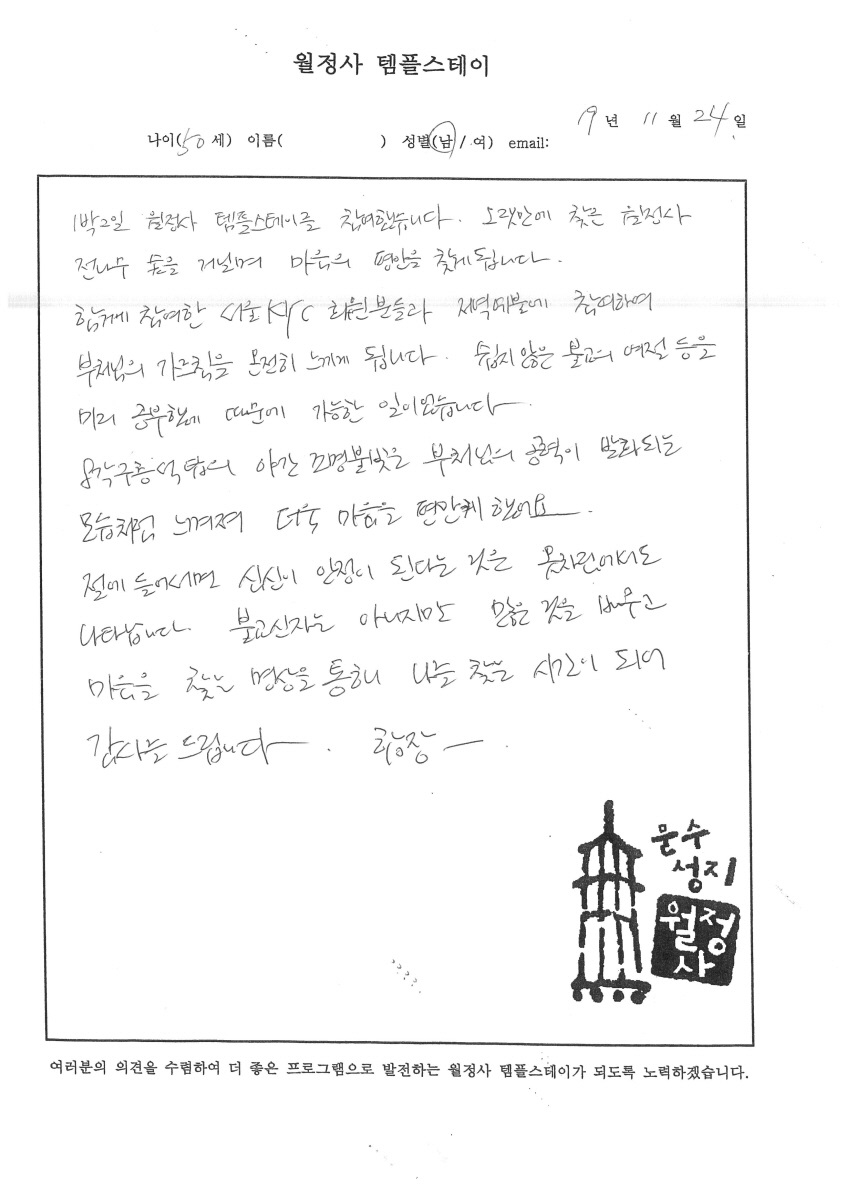 월정사 템플스테이
19년 11월 24일
나이(50세) 이름( ) 성별(남/여) email:
1박2일 월정사 템플스테이를 참여했습니다. 오랫만에 찾은 월정사
전나무 숲을 거닐며 마음의 평안을 찾게됩니다.
함께 참여한 서울KYC 회원분들과 저녁예불에 참여하여
부처님의 가르침을 온전히 느끼게 됩니다. 쉽지않은 불교의 예절 등을
미리 공부했기에 때문에 가능한 일이었습니다.
8각구층석탑의 야간 조명불빛은 부처님의 공력이 발화되는
모습처럼 느껴져 더욱 마음을 편안케 했어요.
절에 들어서면 심신이 안정이 된다는 것은 옷차림에서도
나타납니다. 불교신자는 아니지만 많은 것을 배우고
마음을 찾는 명상을 통해 나를 찾는 시간이 되어
감사를 드립니다. 합장
문수
성지
월정
사
여러분의 의견을 수렴하여 더 좋은 프로그램으로 발전하는 월정사 템플스테이가 되도록 노력하겠습니다.